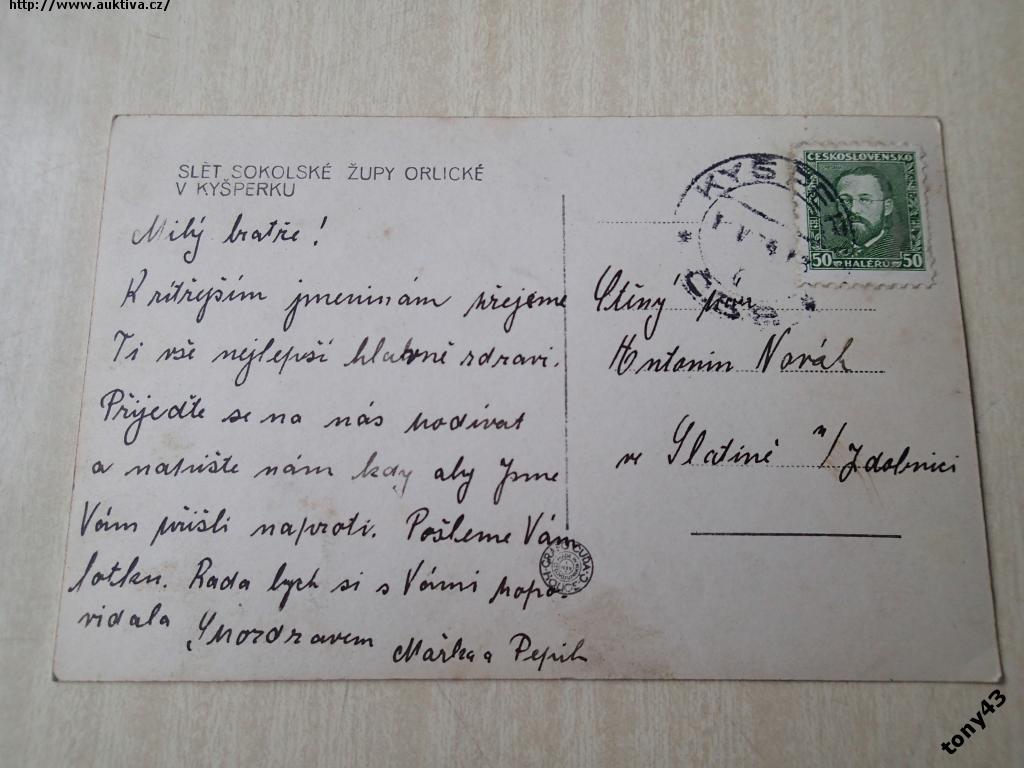 http://www.auktiva.cz/
SLET SOKOLSKÉ ŽUPY ORLICKÉ
V KYŠPERKU
Milý bratře!
K zítřejším jmeninám přejeme
Ti vše nejlepší hlavně zdraví.
Přijeďte se na nás podívat
a napište nám kdy aby jsme
Vám přišli naproti. Pošleme Vám
fotku. Rada bych si s Vámi popo-
vidala S pozdravem Mařka a Pepik
ČESKOSLOVENSKO
50 HALÉŘŮ 50
KYŠPERK
Ctěny pan
Antonin Novák
ve Slatině n/Zdobnici
tony43